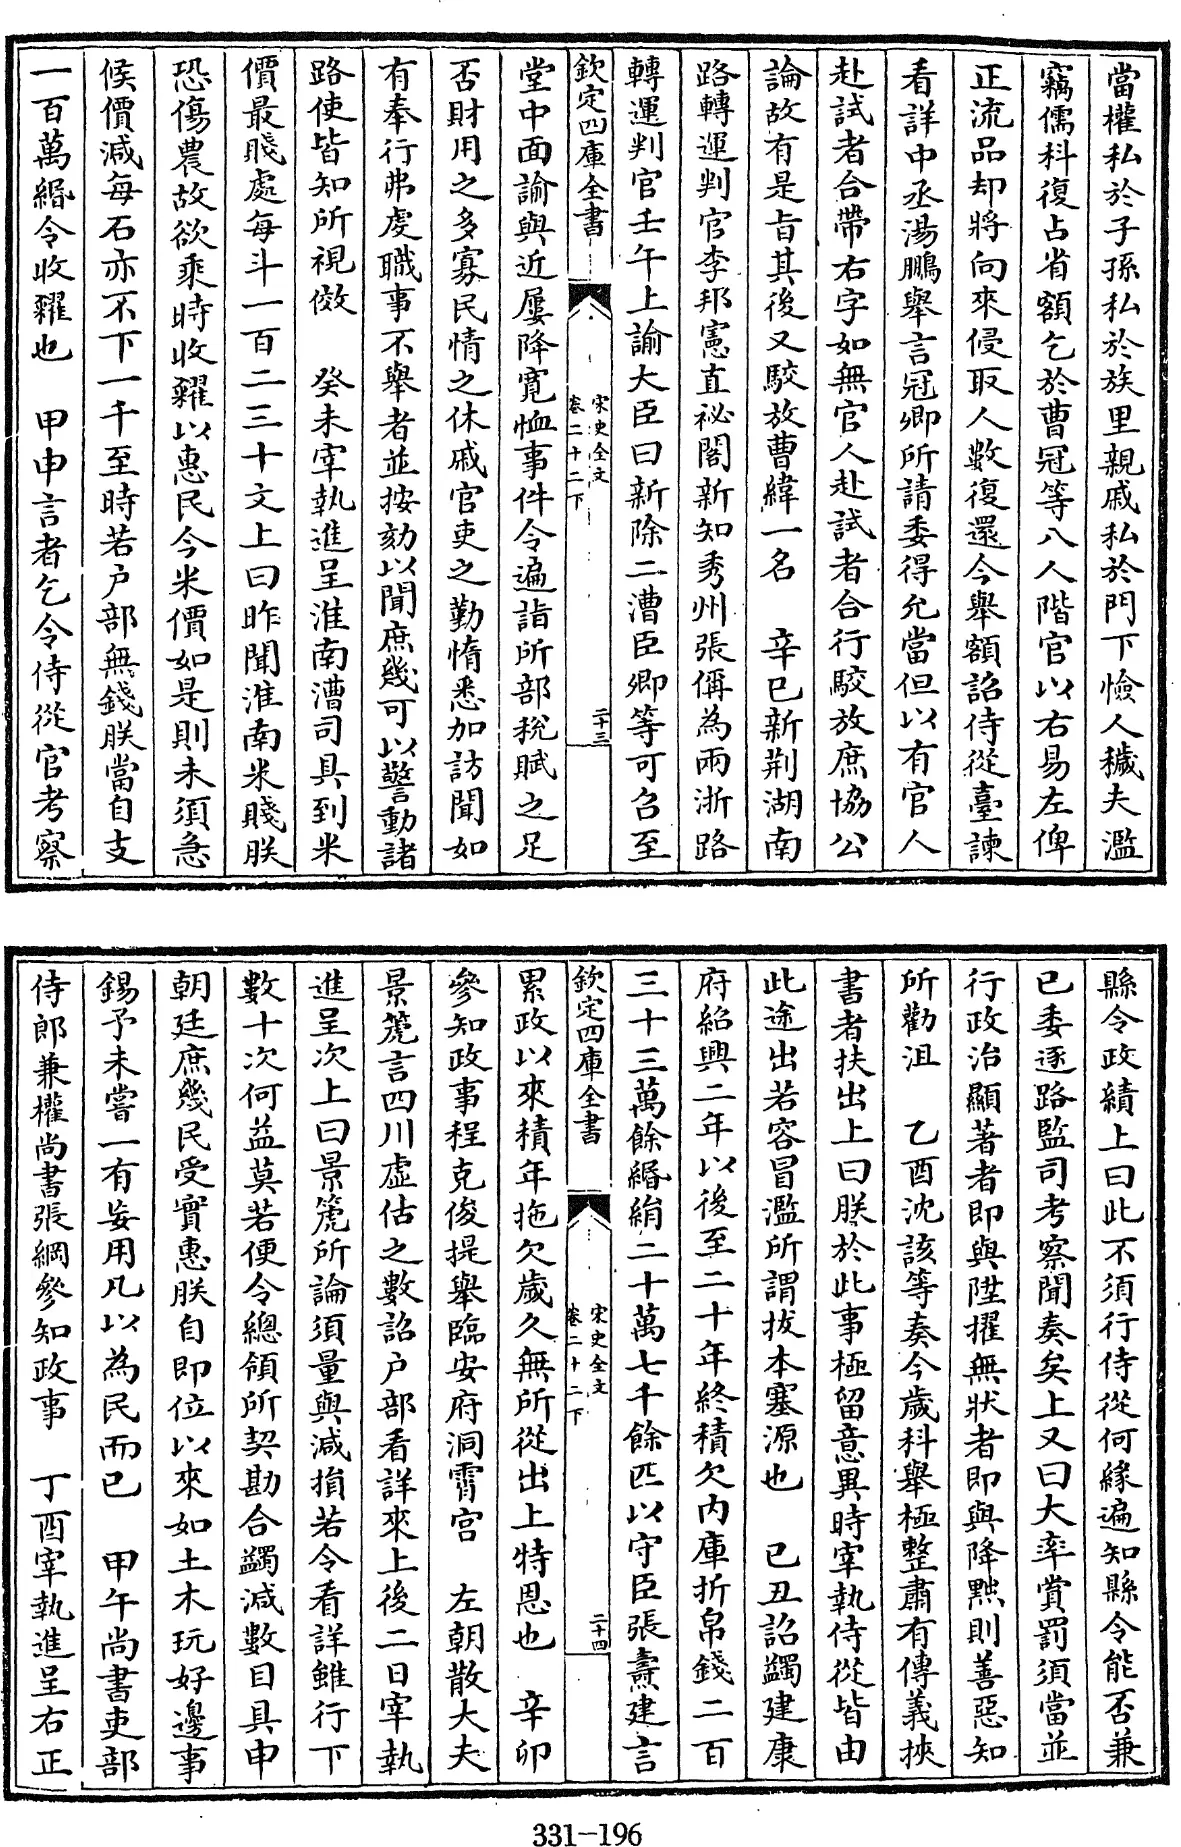 當權私於子孫私於族里親戚私於門下憸人穢夫濫
竊儒科復占省額乞於曹冠等八人階官以右易左俾
正流品却將向來侵取人數復還今舉額詔侍從臺諫
看詳中丞湯鵬舉言冠卿所請委得允當但以有官人
赴試者合帶右字如無官人赴試者合行駮放庶協公
論故有是旨其後又駮放曹緯一名　辛巳新荆湖南
路轉運判官李邦憲直祕閣新知秀州張偁為兩浙路
轉運判官壬午上諭大臣曰新除二漕臣卿等可召至
欽定四庫全書
宋史全文
卷二十二下
二十三
堂中面諭與近屢降寛恤事件令遍詣所部稅賦之足
否財用之多寡民情之休戚官吏之勤惰悉加訪聞如
有奉行弗虔職事不舉者並按劾以聞庶幾可以警動諸
路使皆知所視傚　癸未宰執進呈淮南漕司具到米
價最賤處每斗一百二三十文上曰昨聞淮南米賤朕
恐傷農故欲乘時收糴以惠民今米價如是則未須急
候價減每石亦不下一千至時若户部無錢朕當自支
一百萬緡令收糴也　甲申言者乞令侍從官考察
縣令政績上曰此不須行侍從何緣遍知縣令能否兼
已委逐路監司考察聞奏矣上又曰大率賞罰須當並
行政治顯著者即與陞擢無狀者即與降黜則善惡知
所勸沮　乙酉沈該等奏今歲科舉極整肅有傳義挾
書者扶出上曰朕於此事極留意異時宰執侍從皆由
此途出若容冒濫所謂拔本塞源也　己丑詔蠲建康
府紹興二年以後至二十年終積欠内庫折帛錢二百
三十三萬餘緡絹二十萬七千餘匹以守臣張燾建言
欽定四庫全書
宋史全文
卷二十二下
二十四
累政以來積年拖欠歲久無所從出上特恩也　辛卯
參知政事程克俊提舉臨安府洞霄宫　左朝散大夫
景箎言四川虛估之數詔户部看詳來上後二日宰執
進呈次上曰景箎所論須量與減損若令看詳雖行下
數十次何益莫若便令總領所契勘合蠲減數目具申
朝廷庶幾民受實惠朕自即位以來如土木玩好邊事
錫予未嘗一有妄用凡以為民而已　甲午尚書吏部
侍郎兼權尚書張綱參知政事　丁酉宰執進呈右正
331-196